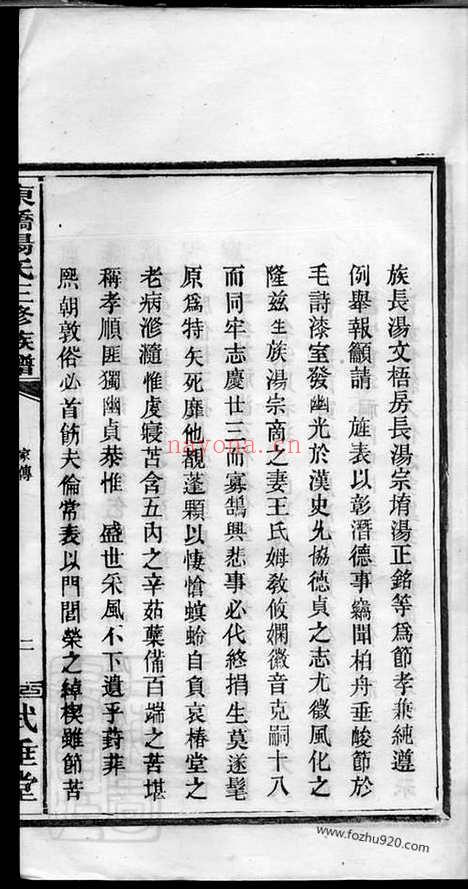 族長湯文梧房長湯宗堉湯正銘等爲節孝兼純遵
例舉報籲請 旌表以彰潛德事竊聞柏舟垂酸節於
毛詩漆室發幽光於漢史允協德貞之志尤徵風化之
隆茲生族湯宗商之妻王氏姆教攸嫻徽音克嗣十八
而同牢志慶廿三而寡鵠興悲事必代終捐生莫遂髦
原爲特矢死靡他覩蓬顆以悽愴螟蛉自負哀椿堂之
老病滫瀡惟虔寢苫含五內之辛茹蘗備百端之苦堪
稱孝順匪獨幽貞恭惟 盛世采風不下遺乎葑菲
熙朝敦俗必首飭夫倫常表以門閭榮之綽楔雖節苦
東橋湯氏三修族譜
家傳
二
式垂堂
nayona.cn
www.fozhu920.com